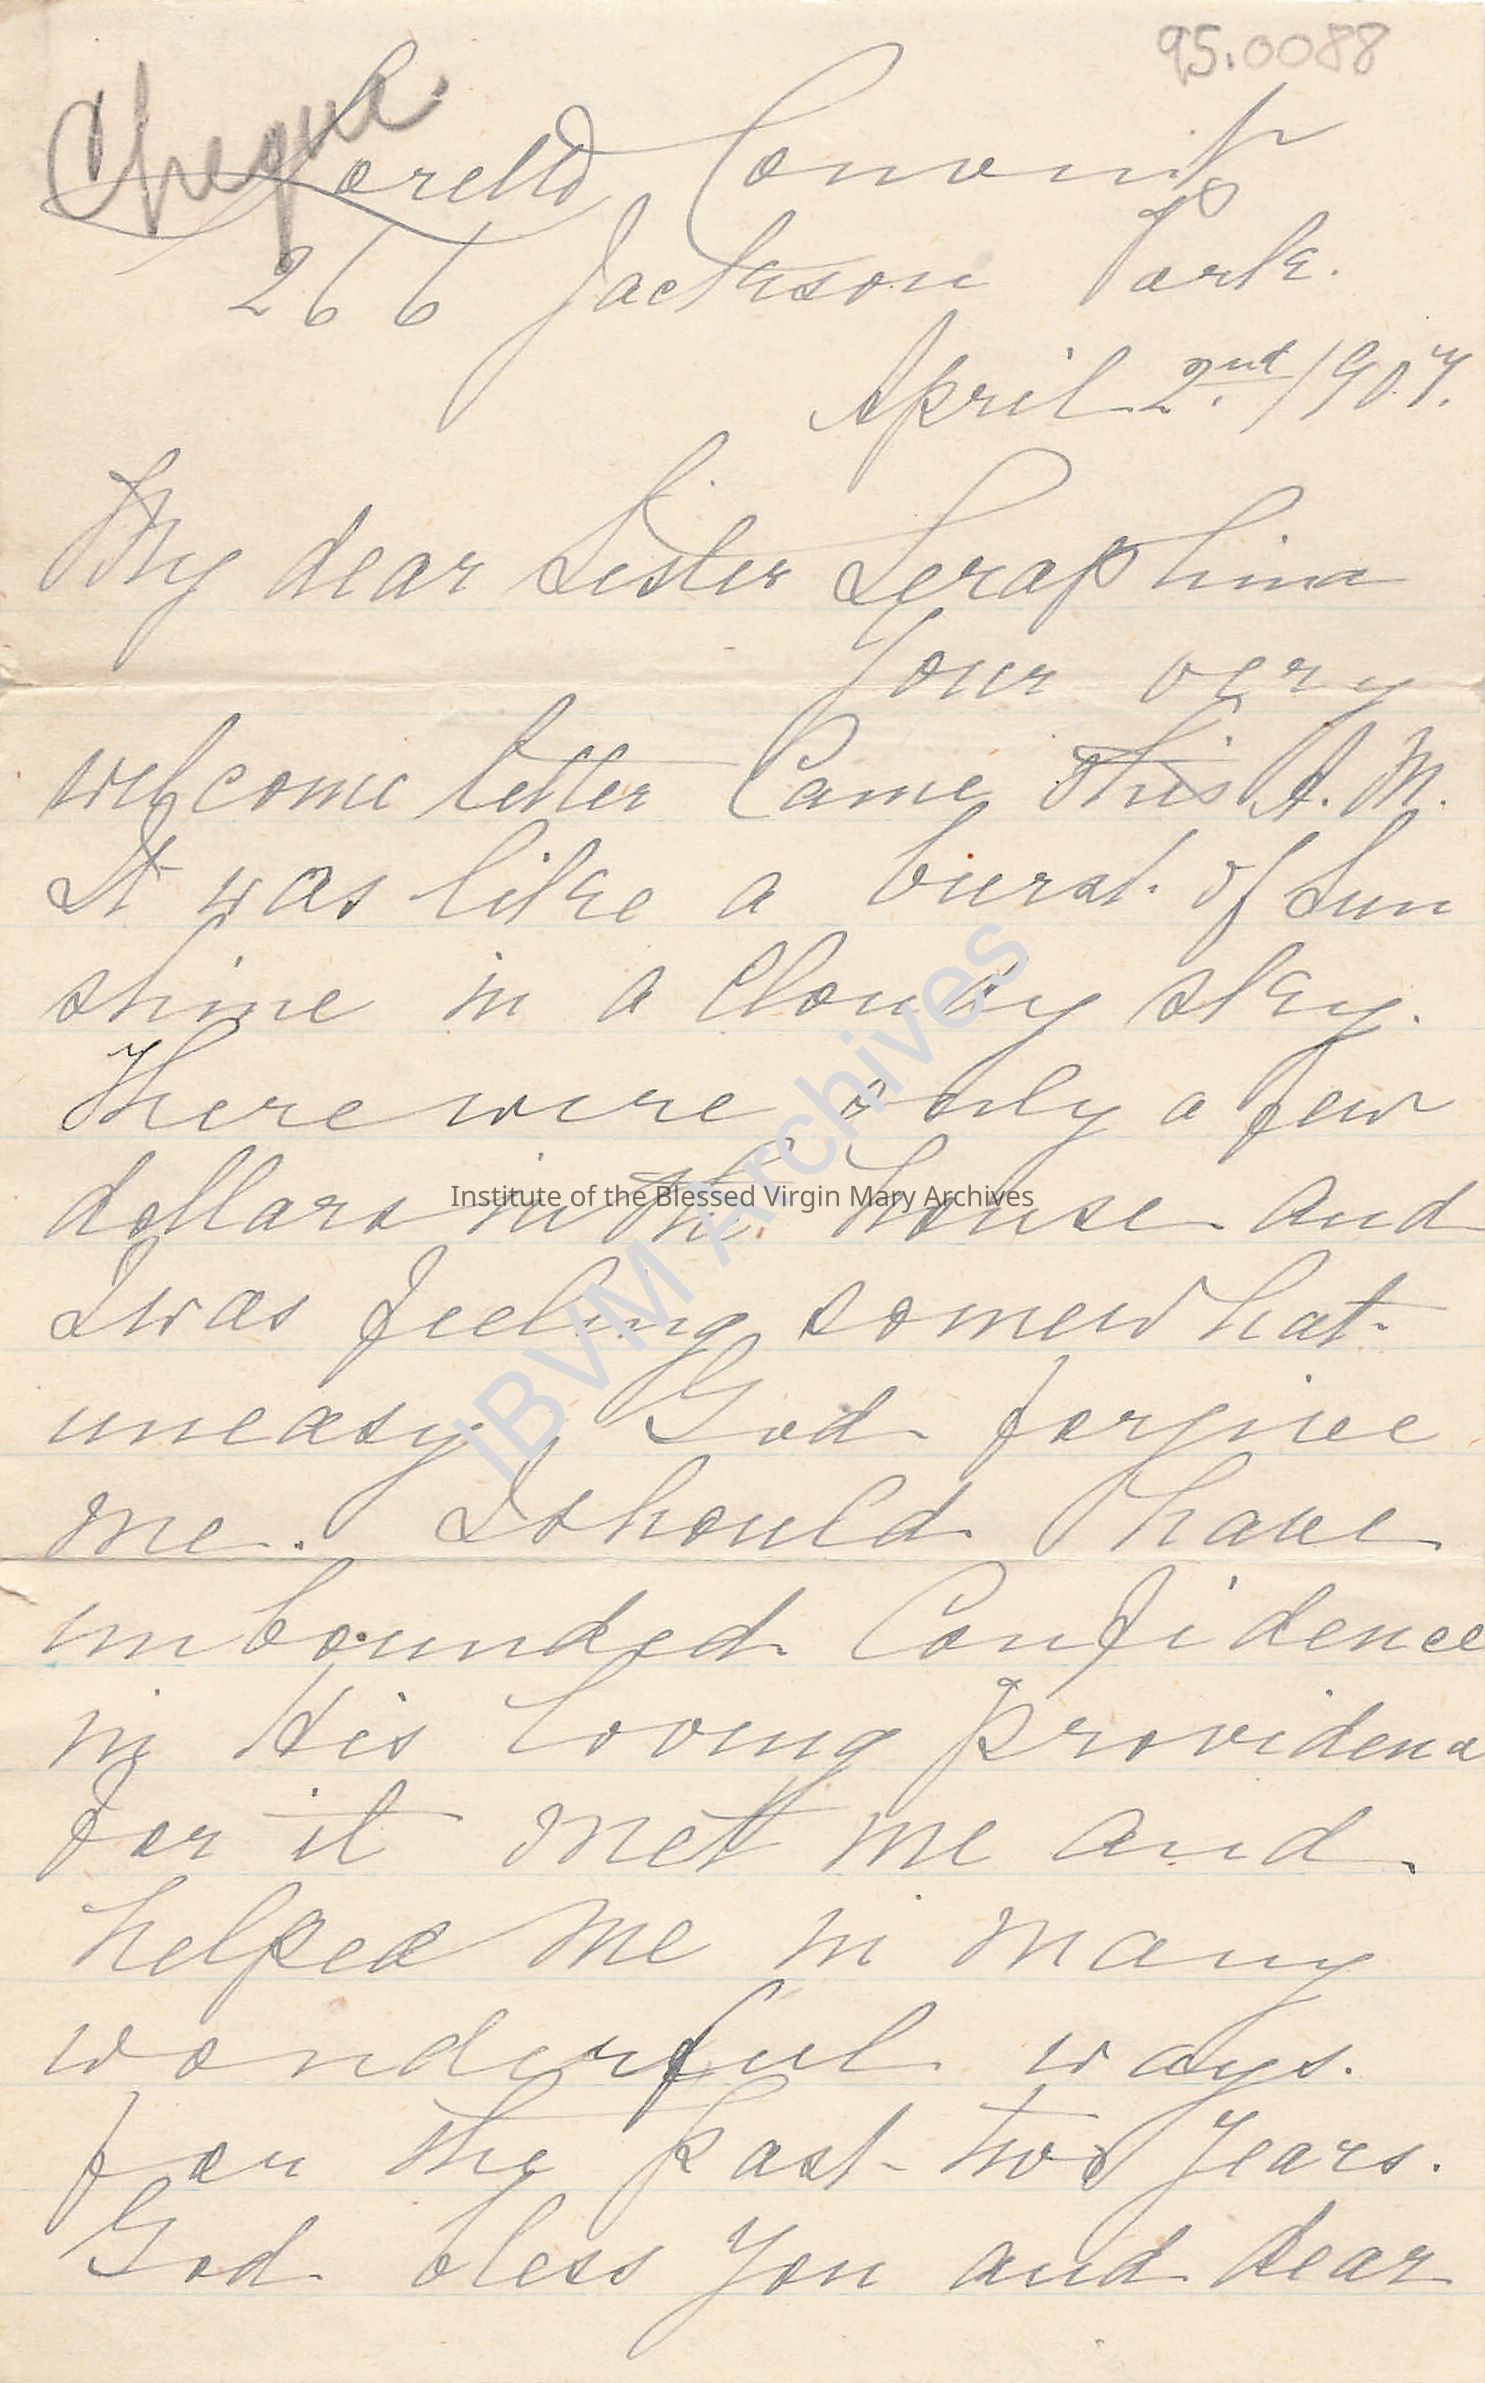 95.0088
Cheque.
Loretto Convent
266 Jackson Park.
April 2nd. 1907.
My dear Sister Seraphina
Your very
welcome letter Came this A.M.
It was like a burst of Sun
shine in a Cloudy sky.
There were only a few
dollars in the house and
I was feeling somewhat
uneasy, God forgive
me. I should have
unbounded Confidence
in His loving Providence
for it met me and
helped me in many
wonderful ways.
for the past two years.
God bless you and dear
IBVM Archives
Institute of the Blessed Virgin Mary Archives